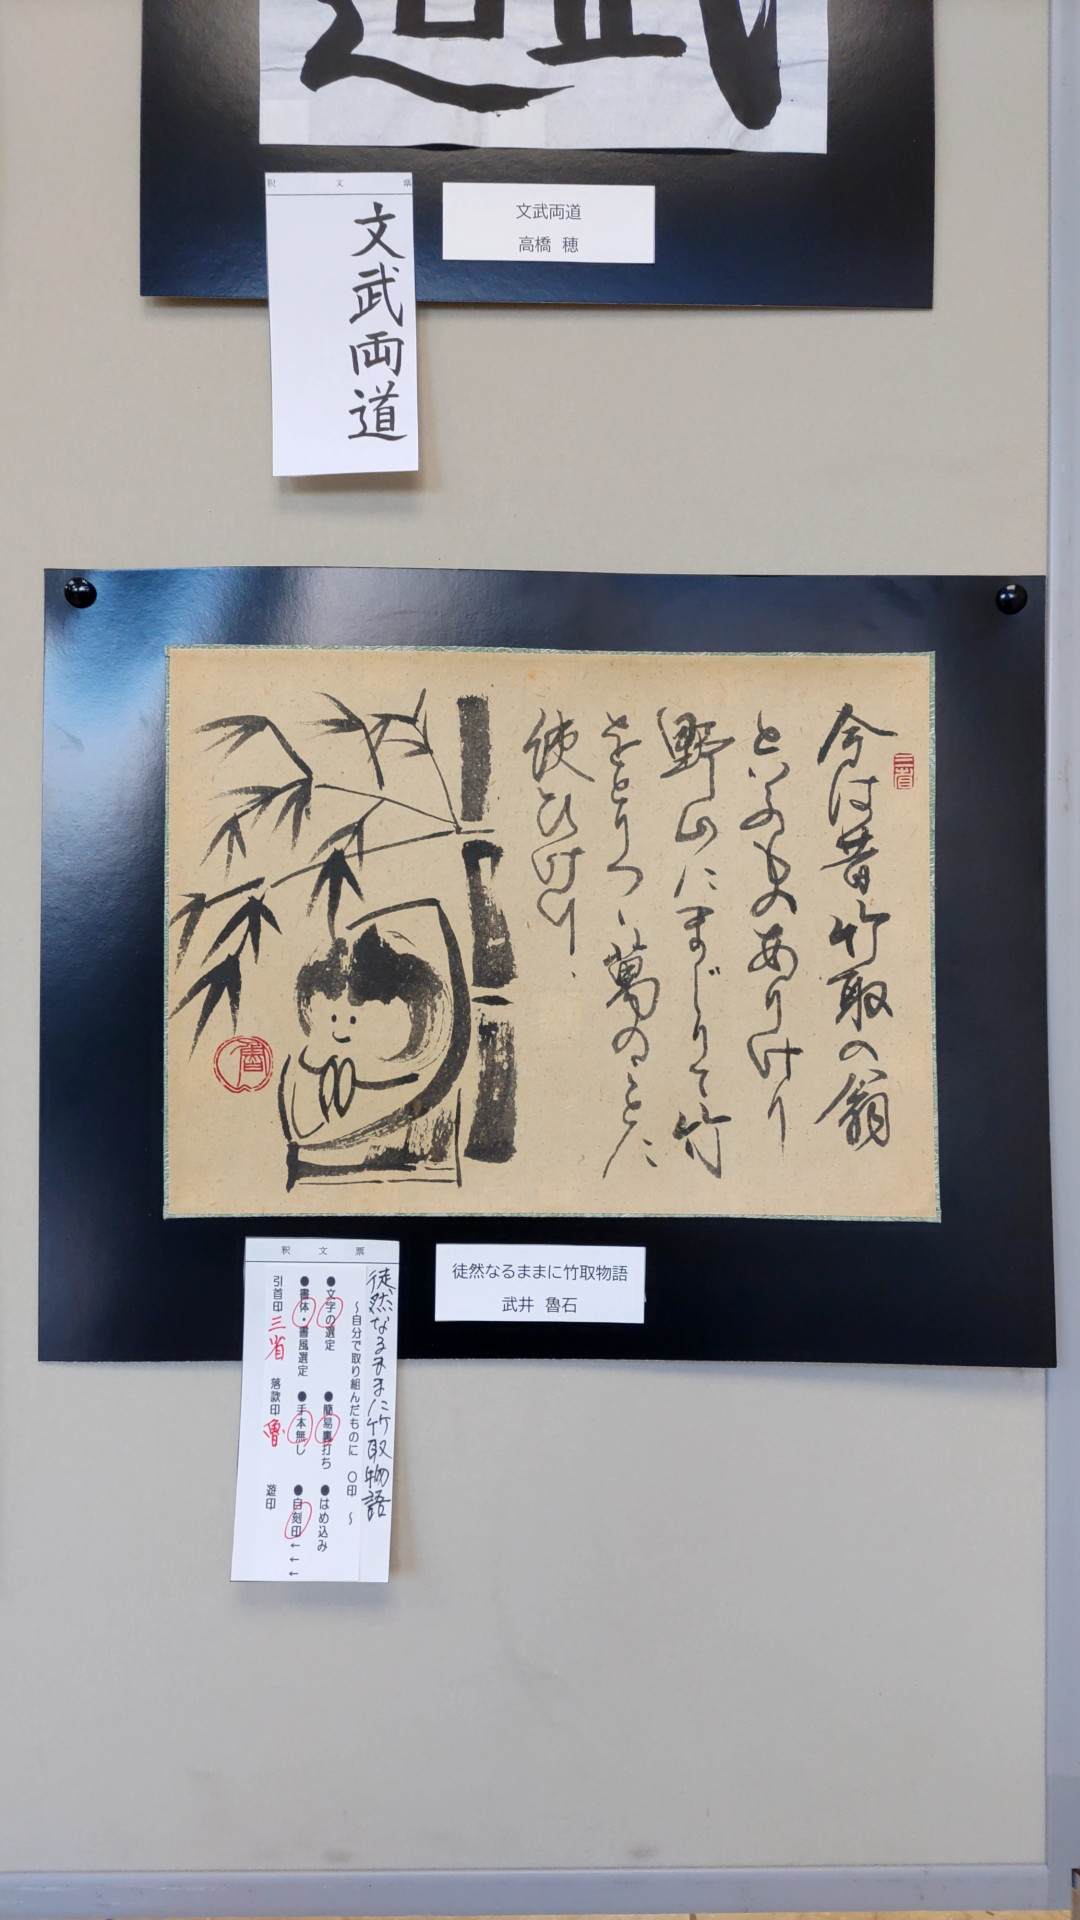 釈文票
文武両道
文武両道
高橋 穂
今は昔竹取の翁
といふものありけり
野山にまじりて竹
をとりつゝ萬のことに
使ひけり
三省
魯
徒然なるままに竹取物語
武井 魯石
釈文票
徒然なるままに竹取物語
～自分で取り組んだものに 〇印 ～
●文字の選定 ●簡易裏打ち ●はめ込み
●書体・書風選定 ●手本無し ●自刻印←←←
引首印 三省 落款印 魯 遊印